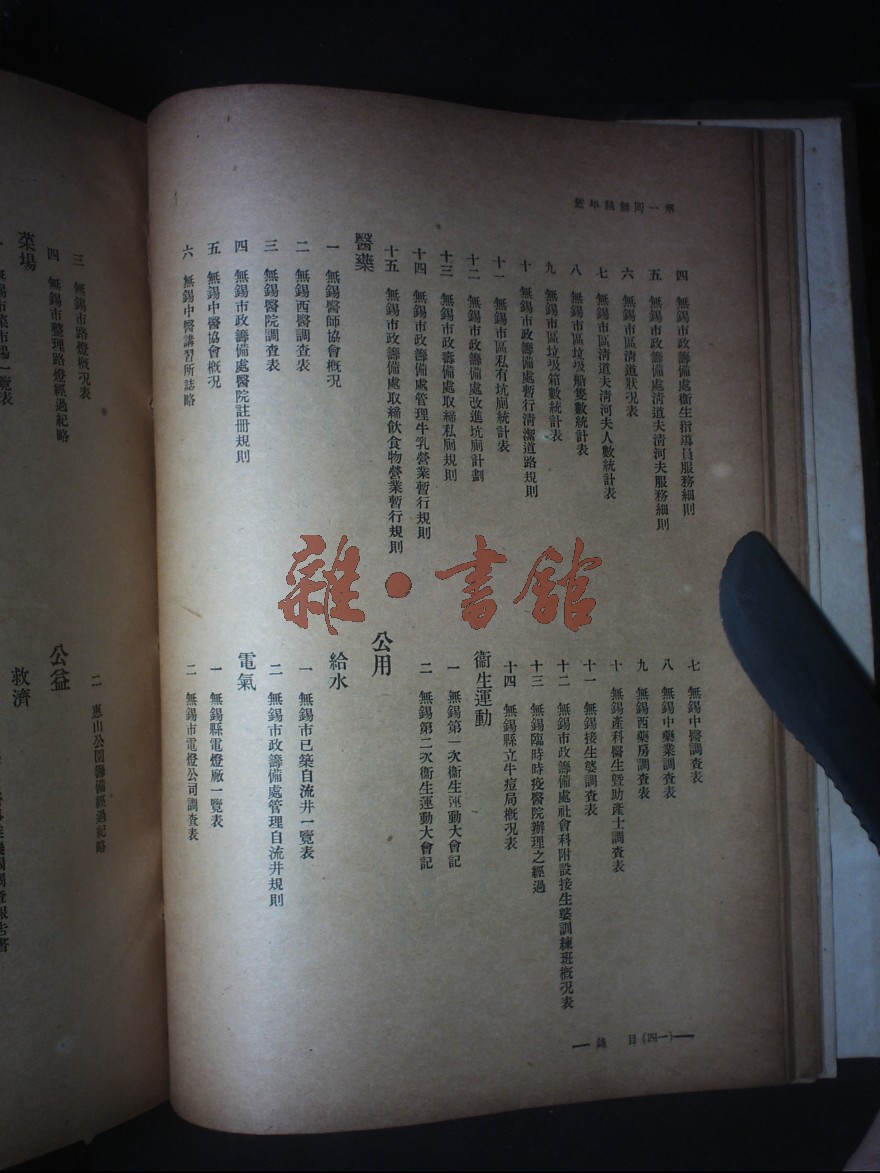 鑑年錫無回一第
四 無錫市政籌備處衞生指導員服務細則
五 無錫市政籌備處清道夫清河夫服務細則
六 無錫市區清道狀況表
七 無錫市區清道夫清河夫人數統計表
八 無錫市區垃圾船隻數統計表
九 無錫市區垃圾箱數統計表
十 無錫市政籌備處暫行清潔道路規則
十一 無錫市區私有坑廁統計表
十二 無錫市政籌備處改進坑廁計劃
十三 無錫市政籌備處取締私廁規則
十四 無錫市政籌備處管理牛乳營業暫行規則
十五 無錫市政籌備處取締飲食物營業暫行規則
醫藥
一 無錫醫師協會概況
二 無錫西醫調查表
三 無錫醫院調查表
四 無錫市政籌備處醫院註册規則
五 無錫中醫協會概況
六 無錫中醫講習所誌略
七 無錫中醫調查表
八 無錫中藥業調查表
九 無錫西藥房調查表
十 無錫產科醫生暨助產士調查表
十一 無錫接生婆調查表
十二 無錫市政籌備處社會科附設接生婆訓練班概況表
十三 無錫臨時時疫醫院辦理之經過
十四 無錫縣立牛痘局概況表
衞生運動
一 無錫第一次衞生運動大會記
二 無錫第二次衞生運動大會記
公用
給水
一 無錫市已築自流井一覽表
二 無錫市政籌備處管理自流井規則
電氣
一 無錫縣電燈廠一覽表
二 無錫市電燈公司調查表
錄 目 (四一)
三 無錫市路燈概況表
四 無錫市整理路燈經過紀略
菜場
一 無錫市菜市場一覽表
二 惠山公園籌備經過紀略
公益
救濟
雜·書館